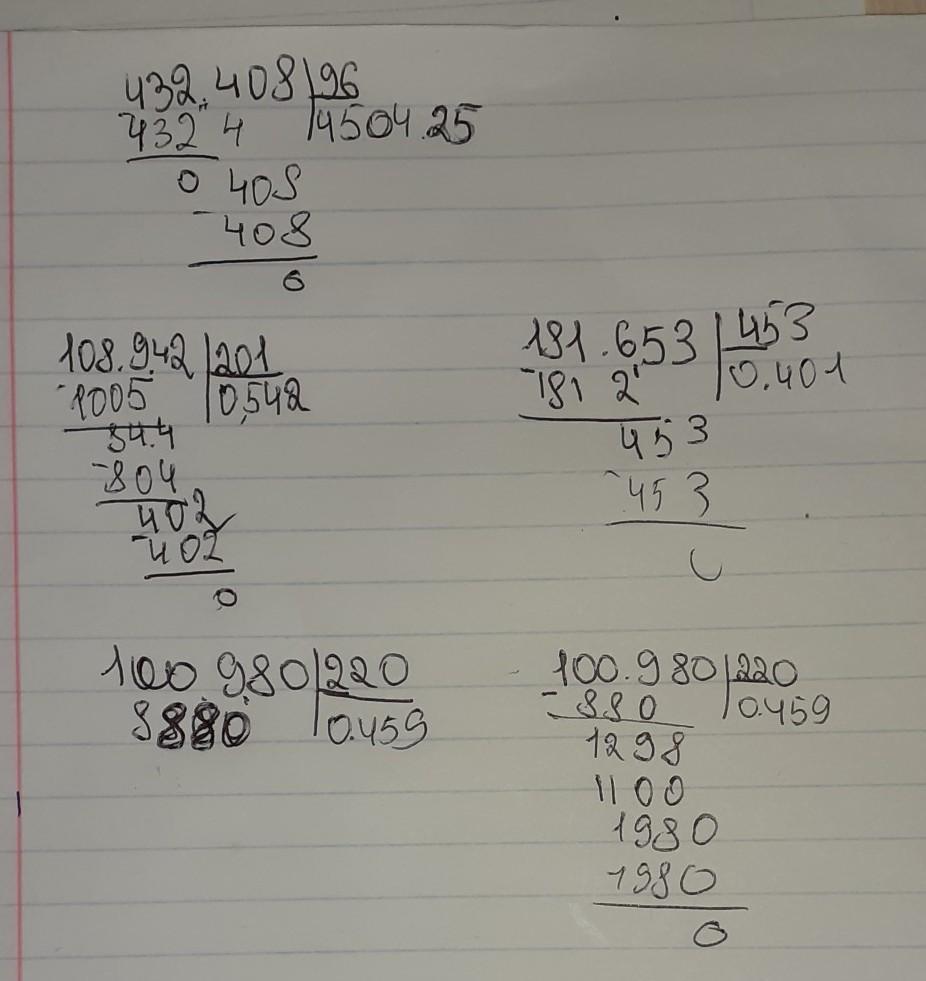 432.408 96
-432 4 4504.25
0 408
-408
0
108.942 201
-1005 0,542
84.4
-804
402
-402
0
181.653 453
-181 2 0.401
453
-453
0
100.980 220
8880 0.459
100.980 220
-880 0.459
1298
1100
1980
1980
0